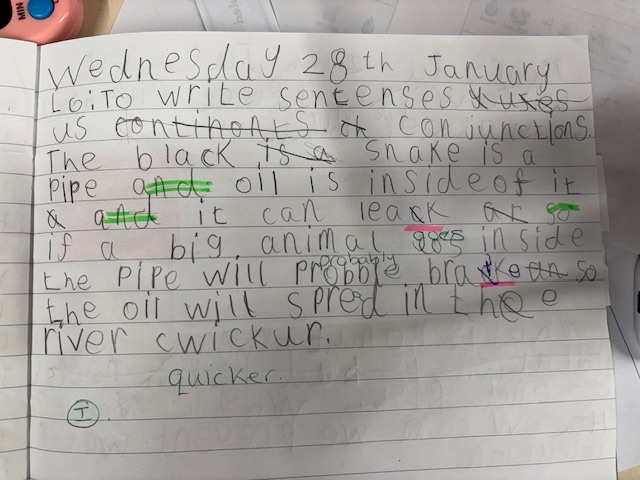 Wednesday 28th January
LO:To write sentenses
us continonts conjunctions.
The black is a snake is a
pipe and oil is insideof it
a and it can leack ar so
if a big animal goes inside
probably
the pipe will probble brake an so
the oil will spred in the e
river cwickur.
quicker.
I
MIN